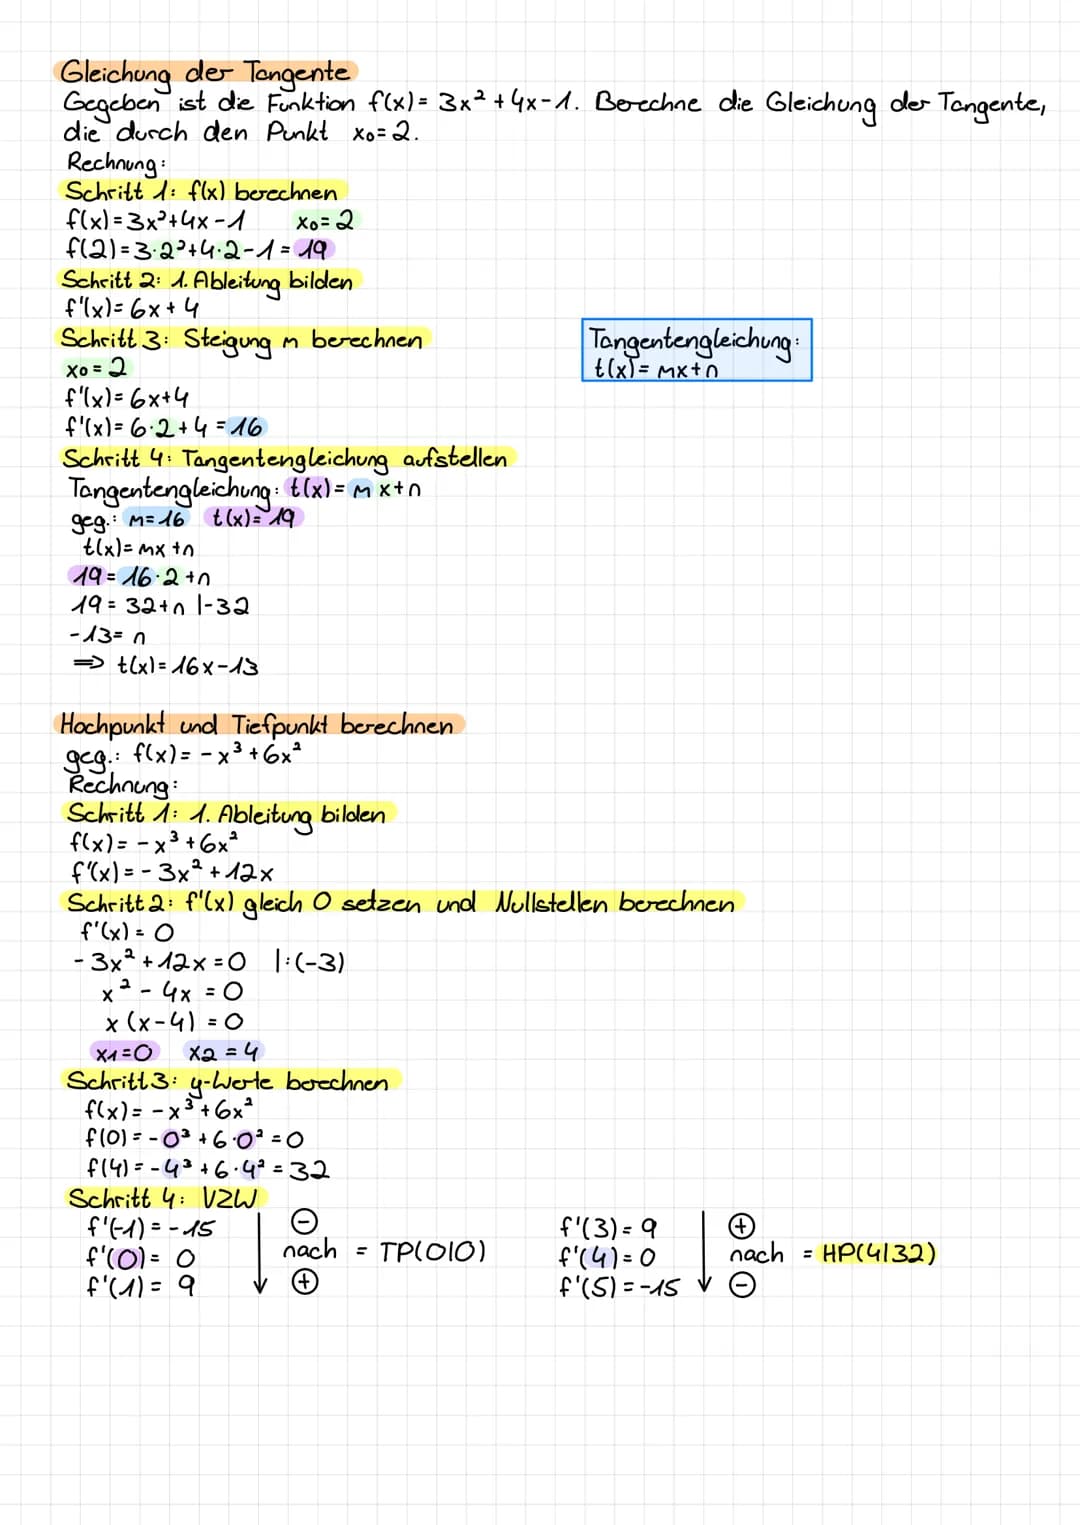 Gleichung der Tangente
Gegeben ist die Funktion f(x) = 3x² + 4x - 1. Berechne die Gleichung der Tangente,
die durch den Punkt x₀ = 2.
Rechnung:
Schritt 1: f(x) berechnen
f(x) = 3x² + 4x - 1 x₀ = 2
f(2) = 3·2² + 4·2 - 1 = 19
Schritt 2: 1. Ableitung bilden
f'(x) = 6x + 4
Schritt 3: Steigung m berechnen
x₀ = 2
Tangentengleichung:
t(x) = mx + n
f'(x) = 6x + 4
f'(x) = 6·2 + 4 = 16
Schritt 4: Tangentengleichung aufstellen
Tangentengleichung: t(x) = m x + n
geg.: m = 16 t(x) = 19
t(x) = mx + n
19 = 16·2 + n
19 = 32 + n |-32
-13 = n
⇒ t(x) = 16x - 13
Hochpunkt und Tiefpunkt berechnen
geg.: f(x) = -x³ + 6x²
Rechnung:
Schritt 1: 1. Ableitung bilden
f(x) = -x³ + 6x²
f'(x) = -3x² + 12x
Schritt 2: f'(x) gleich 0 setzen und Nullstellen berechnen
f'(x) = 0
-3x² + 12x = 0 |:(-3)
x² - 4x = 0
x (x-4) = 0
x₁ = 0 x₂ = 4
Schritt 3: y-Werte berechnen
f(x) = -x³ + 6x²
f(0) = -0³ + 6·0² = 0
f(4) = -4³ + 6·4² = 32
Schritt 4: VZW
f'(-1) = -15 ⊖ f'(3) = 9 ⊕
f'(0) = 0 nach = TP(0|0) f'(4) = 0 nach = HP(4|32)
f'(1) = 9 ⊕ f'(5) = -15 ⊖